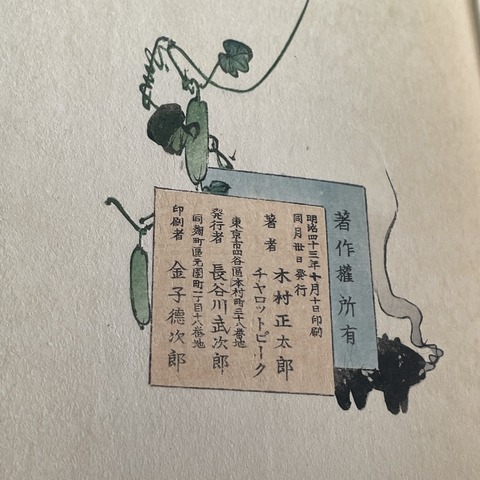 著作權所有
明治四十三年十月十日印刷
同月廿日発行
著者 木村正太郎
チャロットピーク
東京市四谷區本村町三十八番地
発行者 長谷川武次郎
同麹町區元園町一丁目十八番地
印刷者 金子徳次郎